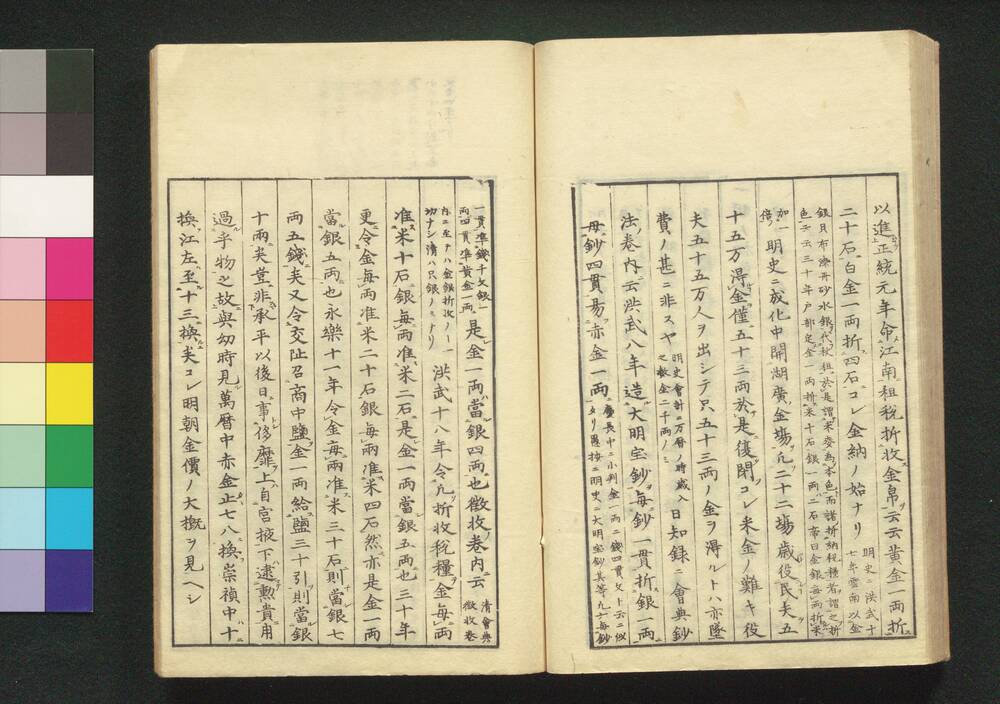 以進正統元年命江南租税折收金帛云云黄金一両折 明史ニ洪武十七年雲南以金
二十石白金一両折四石コレ金納ノ始ナリ
銀貝布漆丹砂水銀代秋租於是謂米麦為本色而諸折納税糧者謂之折
色云云三十年戸部定金一両折米十石銀一両二石帝曰金銀毎両折米
加一倍 明史ニ成化中開湖廣金塲凡二十二塲歳役民夫五
十五万得金僅五十三両於是復閉コレ米金ノ難キ役
夫五十五万人ヲ出シテ只五十三両ノ金ヲ得ルトハ亦墜
費ノ甚ニ非スヤ 明史會計ニ万暦ノ時歳入之数金二千両ノミ 日知録ニ會典鈔
法巻内云洪武八年造大明宝鈔毎鈔一貫折銀一両
毎鈔四貫易赤金一両 慶長中ニ小判金一両ニ銭四貫文ト云ニ似タリ愚按ニ明史ニ大明宝鈔其等凡六毎鈔
一貫準錢千文銀一両四貫準黄金一両 是金一両當銀四両也徴收巻内云 清會典徴收巻
内ニ至テハ金銀折收ノ一切ナシ清ハ只銀ノミナリ 洪武十八年令凡折收税糧金毎両
准米十石銀毎両准米二石是金一両當銀五両也三十年
更令金毎両准米二十石銀毎両准米四石然亦是金一両
當銀五両也永樂十一年令金毎両准米三十石則當銀七
両五錢矣又令交阯召商中鹽金一両給鹽三十引則當銀
十両矣豈非承平以後日事侈靡上自宮掖下逮勲貴用
過乎物之故與幼時見萬暦中赤金止七八換崇禎中十
換江左至十三換矣コレ明朝金價ノ大概ヲ見ヘシ